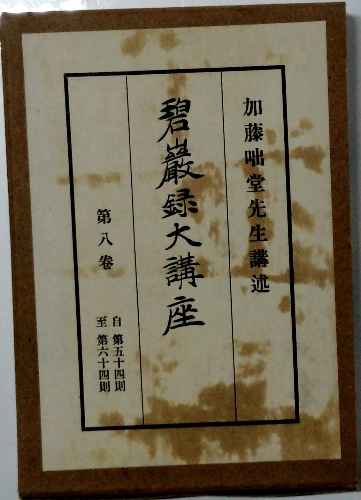 加藤咄堂先生講述
碧巖録大講座
第八卷
自 第五十四則
至 第六十四則